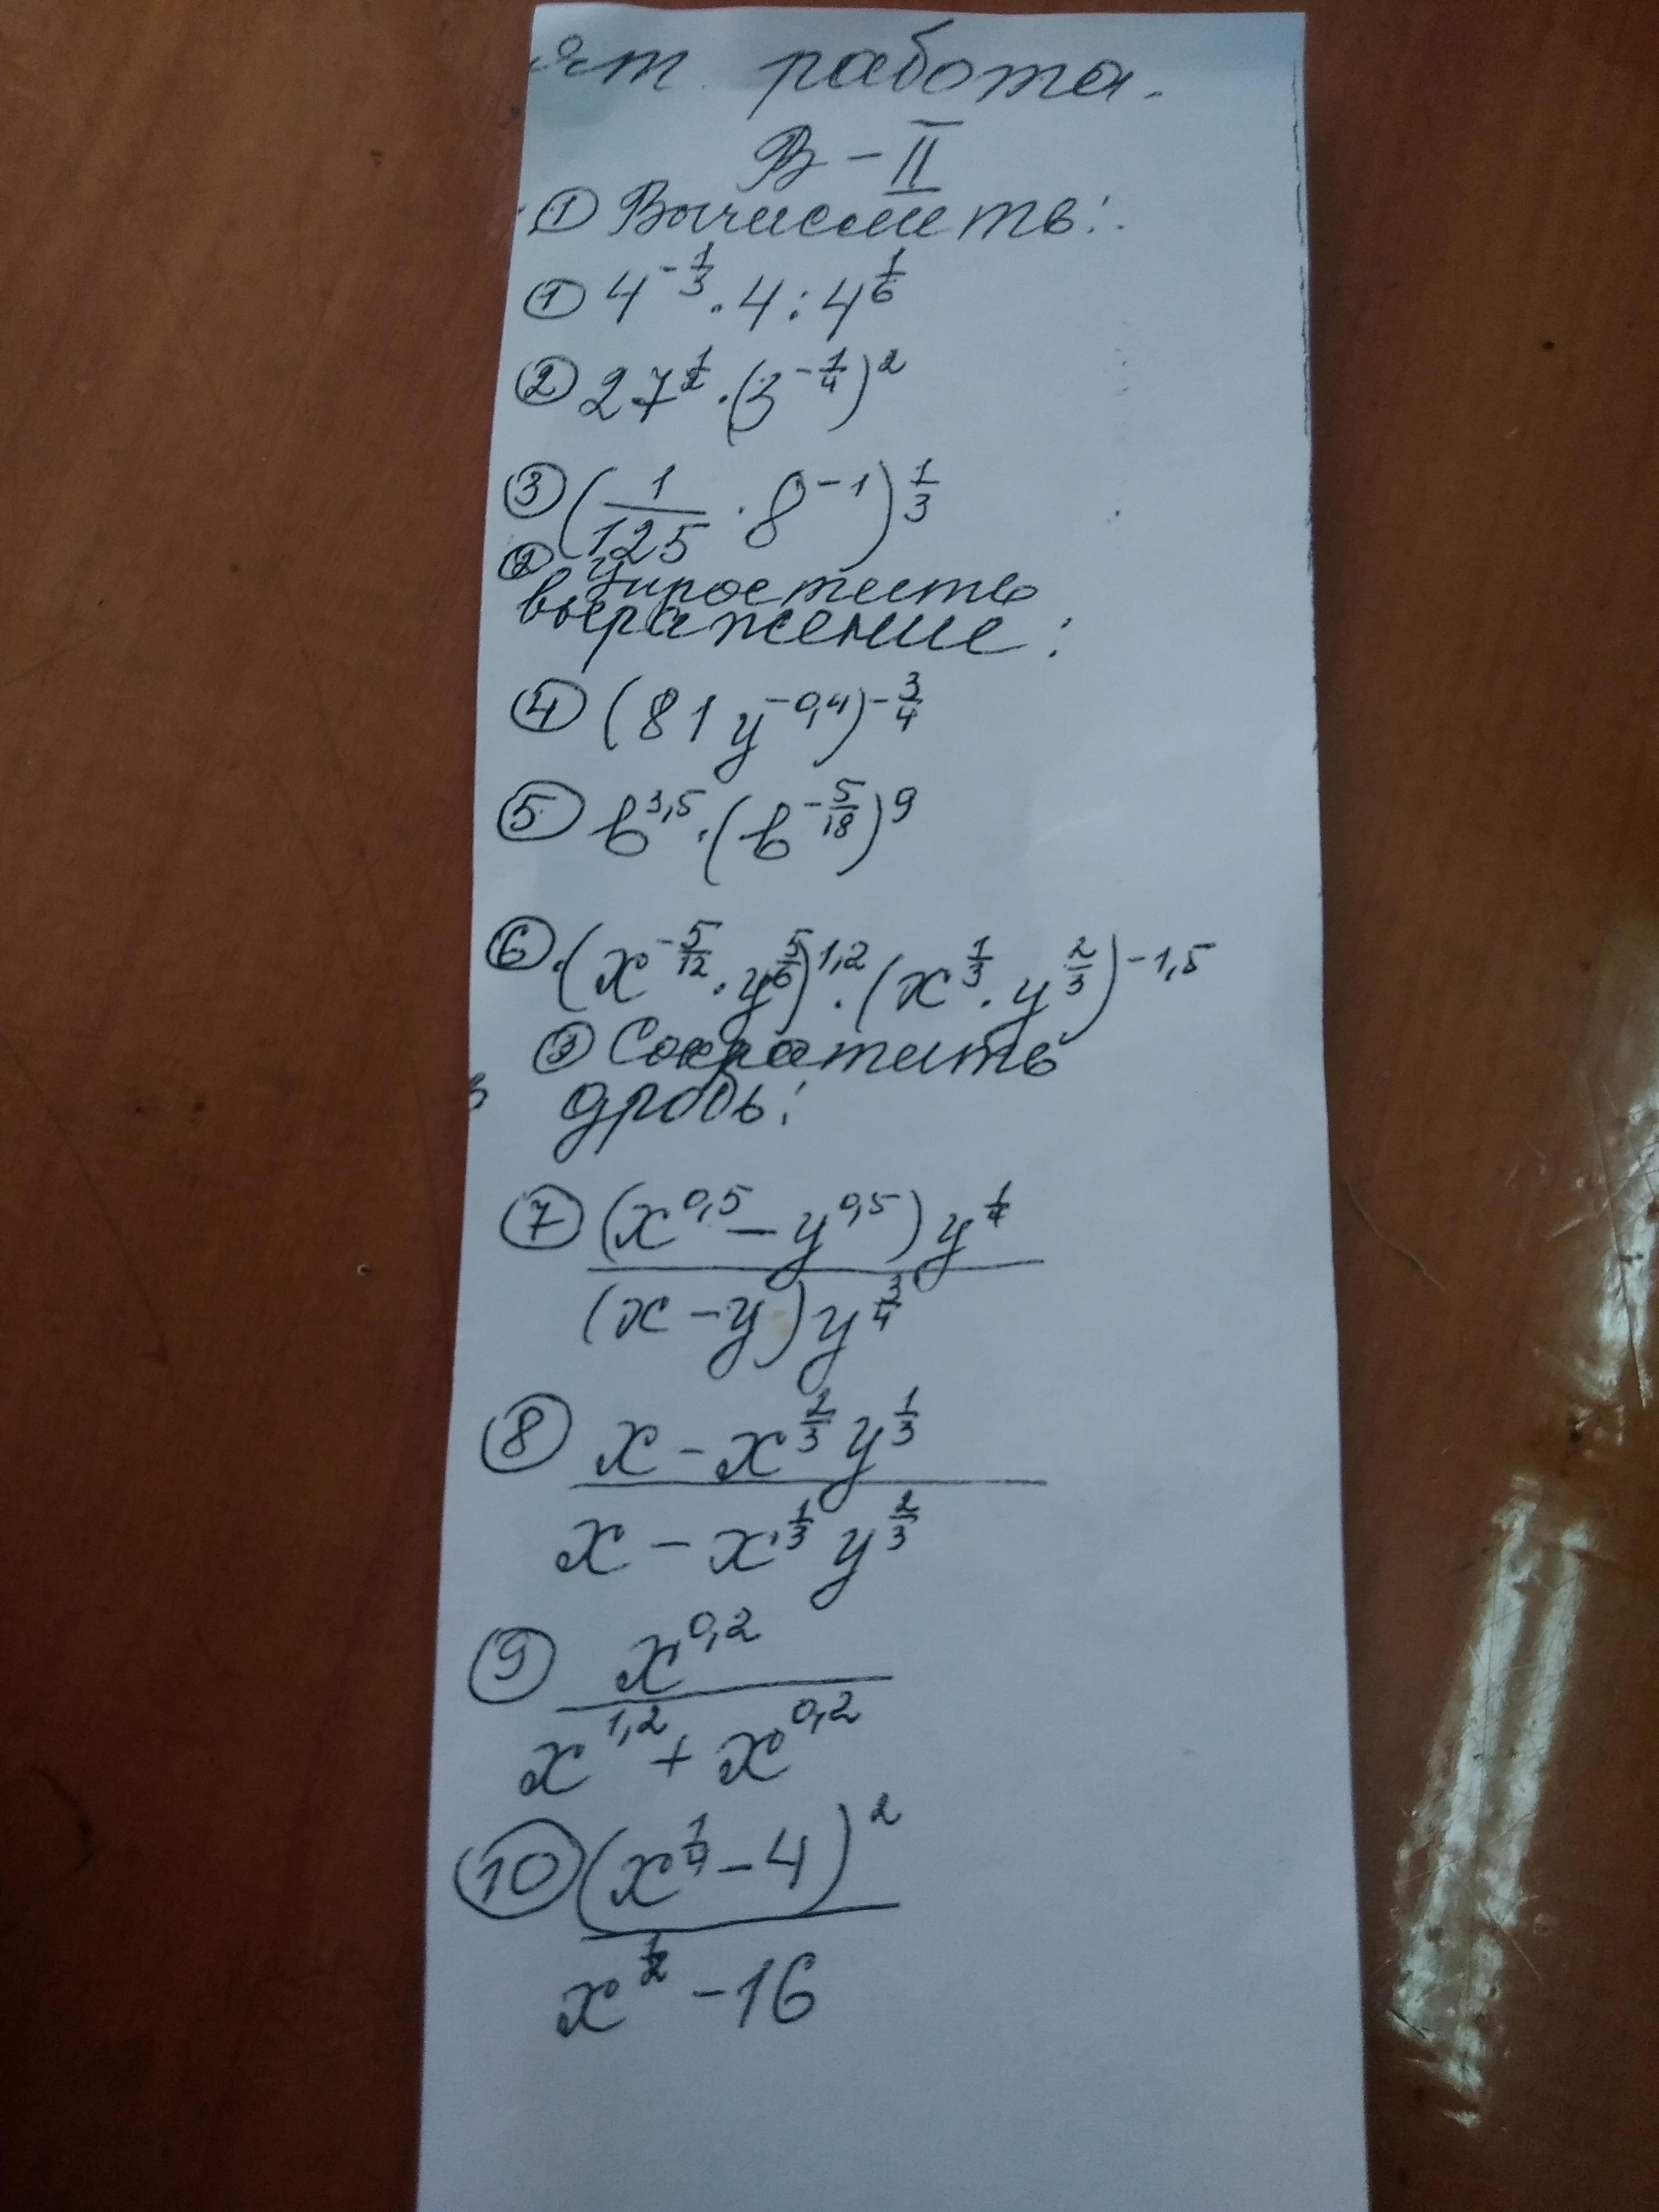 т. работа.
В - II
① Вычислить:
① 4^{-1/3} · 4 : 4^{1/6}
② 27^{1/2} · (3^{-1/4})^2
③ (1/125 · 8^{-1})^{1/3}
② Упростить
выражение:
④ (81 y^{-0,4})^{-3/4}
⑤ b^{3,5} · (b^{-5/18})^9
⑥ (x^{-5/12} · y^{5/6})^{1,2} · (x^{1/3} · y^{2/3})^{-1,5}
③ Сократить
дробь:
⑦ (x^{0,5} - y^{0,5}) y^{1/4}
(x - y) y^{3/4}
⑧ x - x^{2/3} y^{1/3}
x - x^{1/3} y^{2/3}
⑨ x^{0,2}
x^{1,2} + x^{0,2}
⑩ (x^{1/4} - 4)^2
x^{1/2} - 16